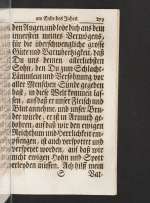 am Ende des Jahrs. 273
den Augen, und lobe dich aus dem
innersten meines Vermögens,
für die überschwengliche grosse
Güte und Barmhertzigkeit, daß
Du uns deinen allerliebsten
Sohn, den Du zum Schlacht-
Lämmlein und Versöhnung vor
aller Menschen Sünde gegeben
hast, in diese Welt kommen las-
sen, auf daß er unser Fleisch und
Blut annehme, und unser Bru-
der würde, er ist in Armuth ge-
bohren, auf daß wir den ewigen
Reichthum und Herrlichkeit em-
pfiengen, ist auch verspottet und
verspeyet worden, auf daß wir
nicht ewigen Hohn und Spott
erleyden müssen. Ach hilff mein
S Vat-